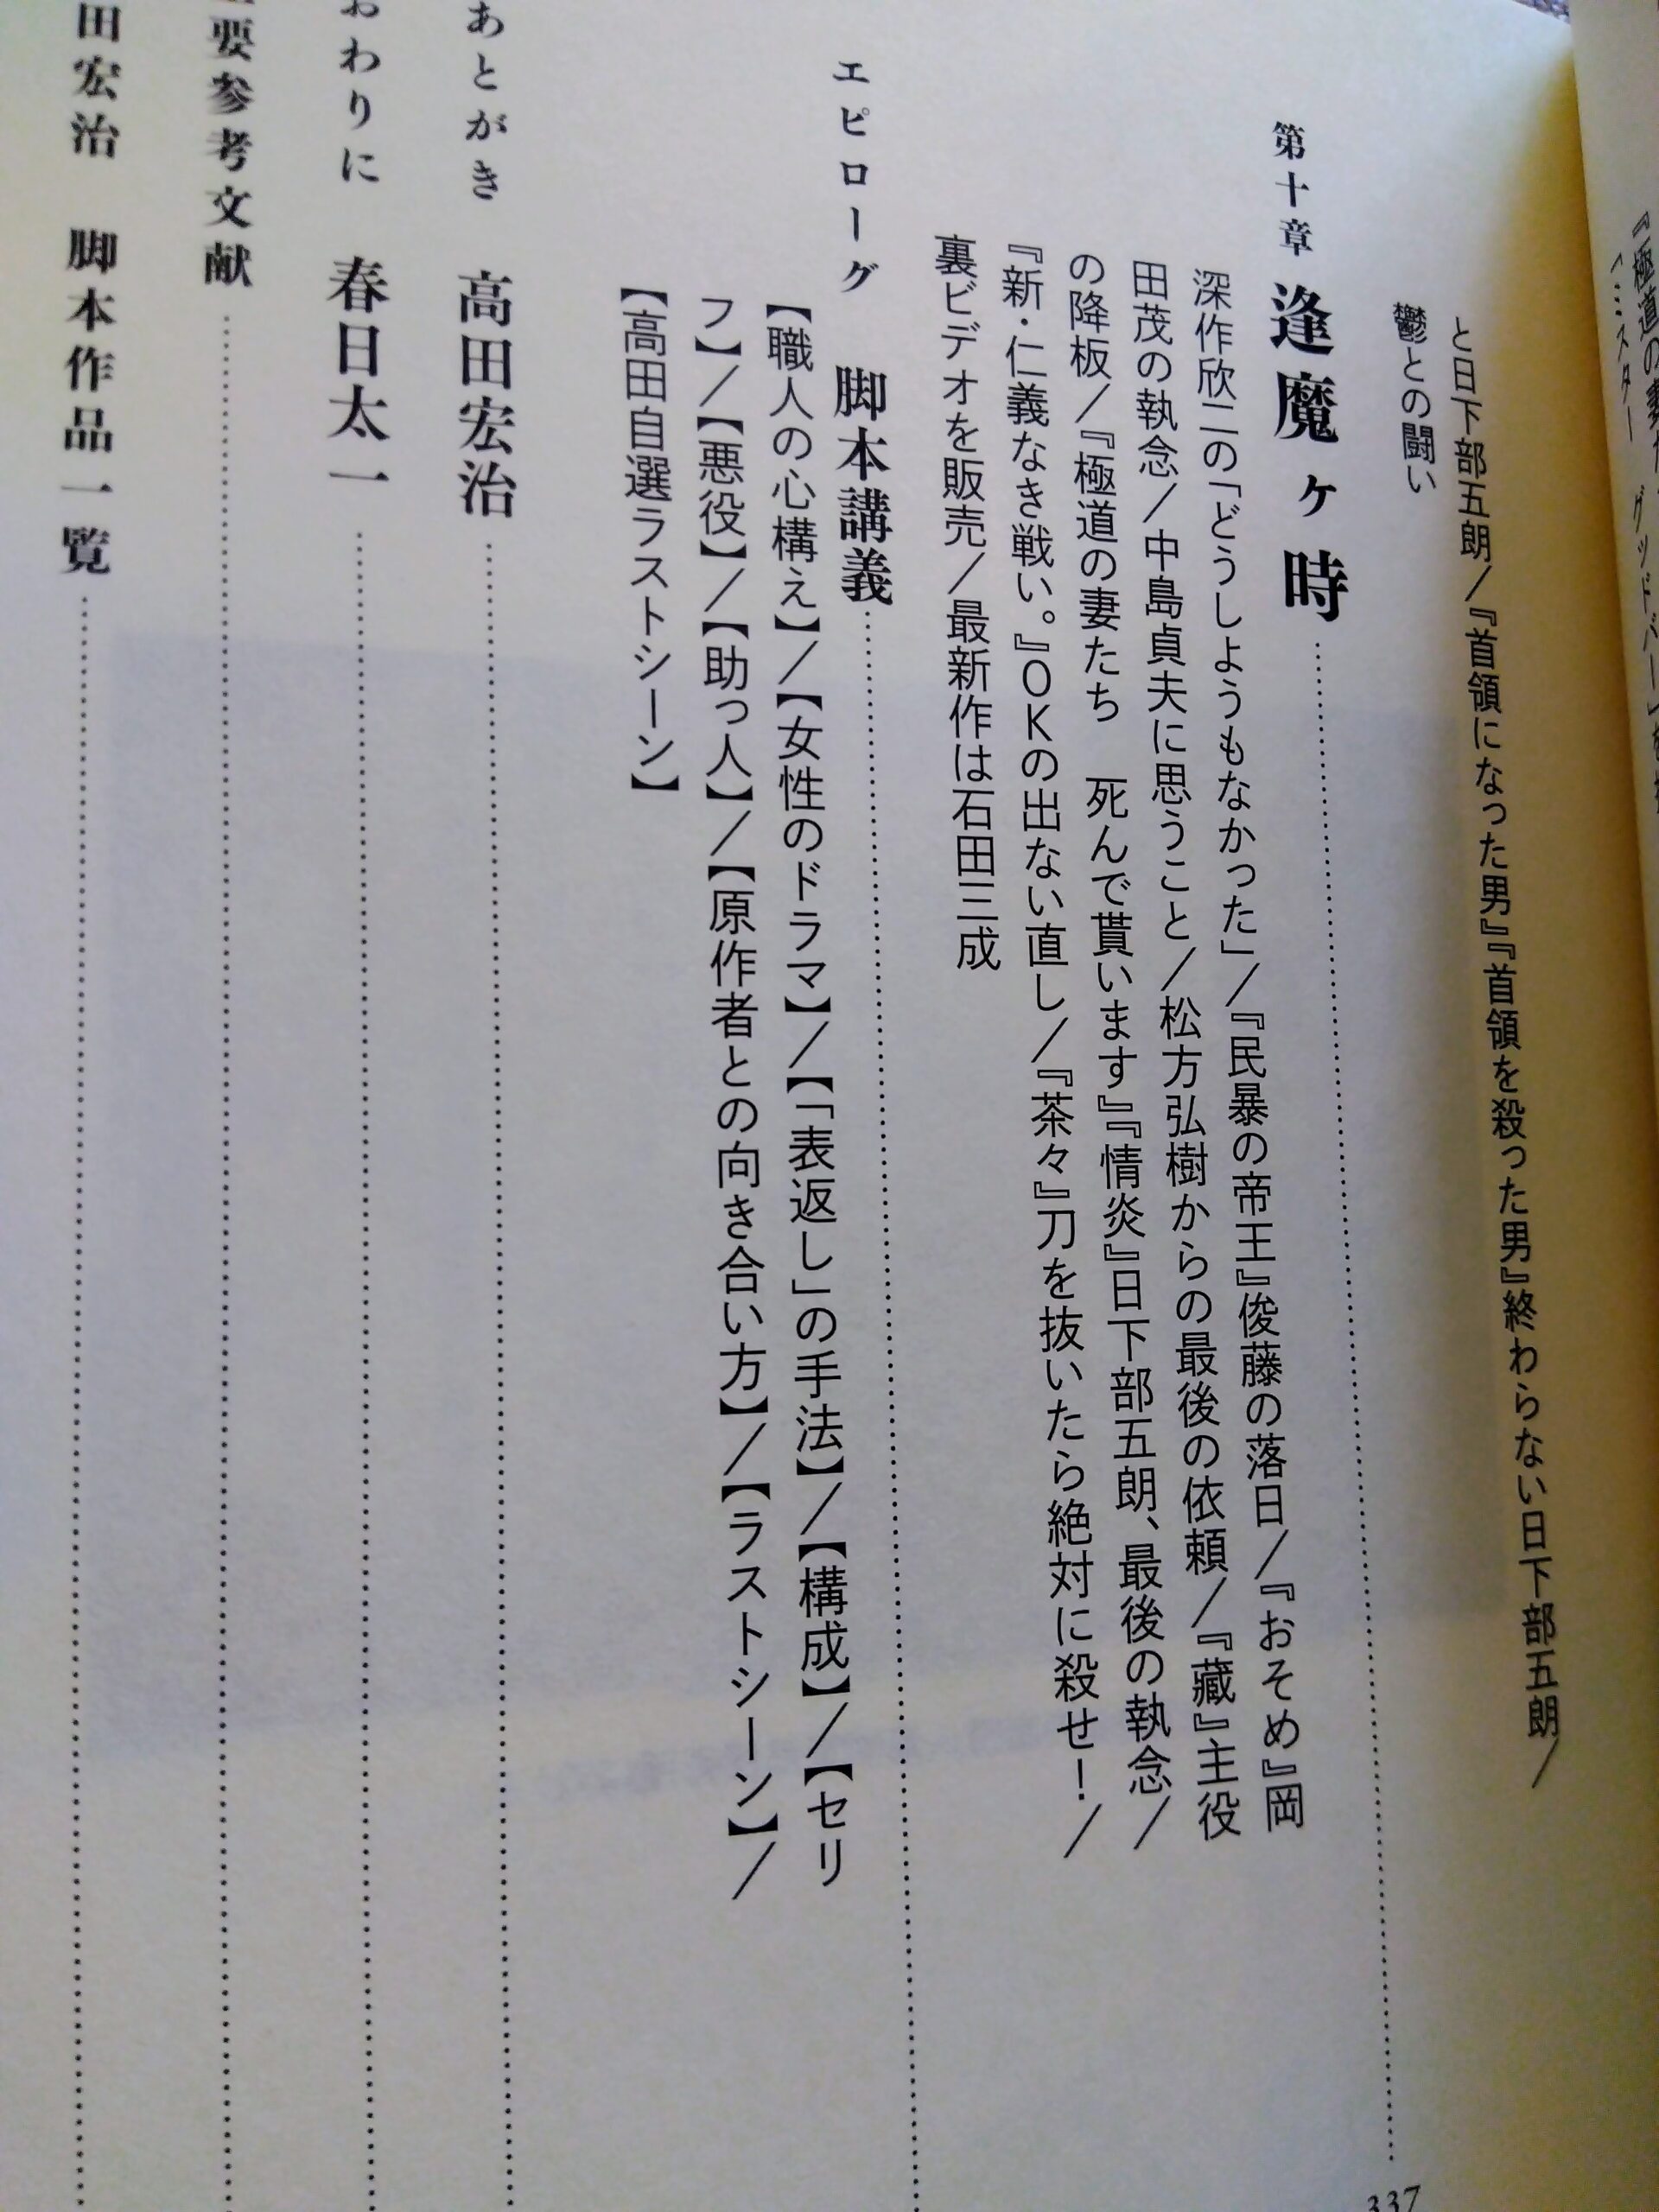 『極道の妻た
スター グッドバー
と日下部五朗／『首領になった男』『首領を殺った男』終わらない日下部五朗／
鬱との闘い
第十章 逢魔ヶ時
337
深作欣二の「どうしようもなかった」／『民暴の帝王』俊藤の落日／『おそめ』岡
田茂の執念／中島貞夫に思うこと／松方弘樹からの最後の依頼／『藏』主役
の降板／『極道の妻たち　死んで貰います』『情炎』日下部五朗、最後の執念／
『新・仁義なき戦い。』OKの出ない直し／『茶々』刀を抜いたら絶対に殺せ！／
裏ビデオを販売／最新作は石田三成
エピローグ 脚本講義
【職人の心構え】／【女性のドラマ】／【「表返し」の手法】／【構成】／【セリ
フ】／【悪役】／【助っ人】／【原作者との向き合い方】／【ラストシーン】／
【高田自選ラストシーン】
あとがき 高田宏治
おわりに 春日太一
要参考文献
田宏治 脚本作品一覧